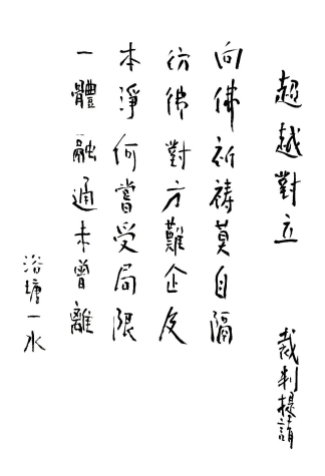 超越對立
裁判提請
向佛祈禱莫自隔
彷彿對方難企及
本淨何嘗受局限
一體融通未曾離
浴塘一水